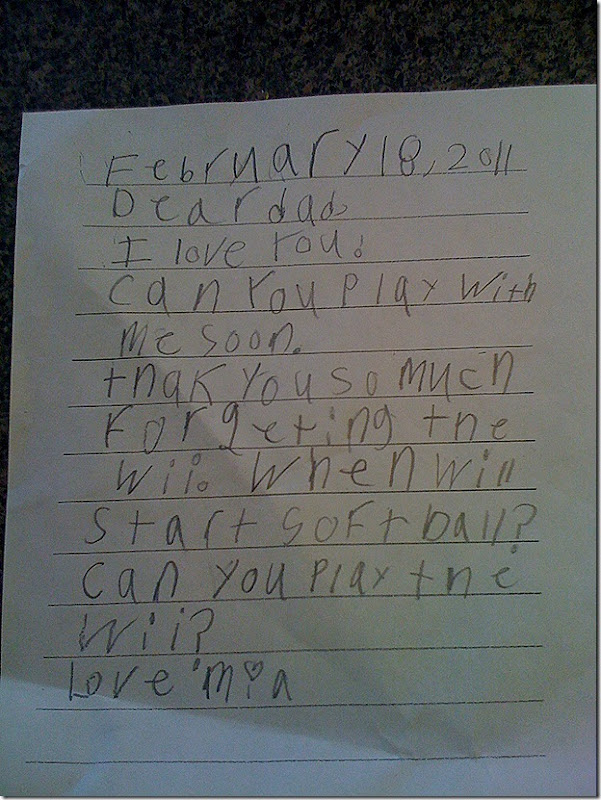 February 18, 2011
Dear dad.
I love You.
Can You Play With
me soon.
tnak You so much
For geting the
Wii. When Will
Start SoFtball?
Can You Play the
Wii?
Love Mia